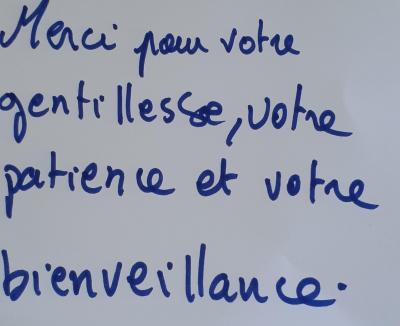 Merci pour votre
gentillesse, votre
patience et votre
bienveillance.